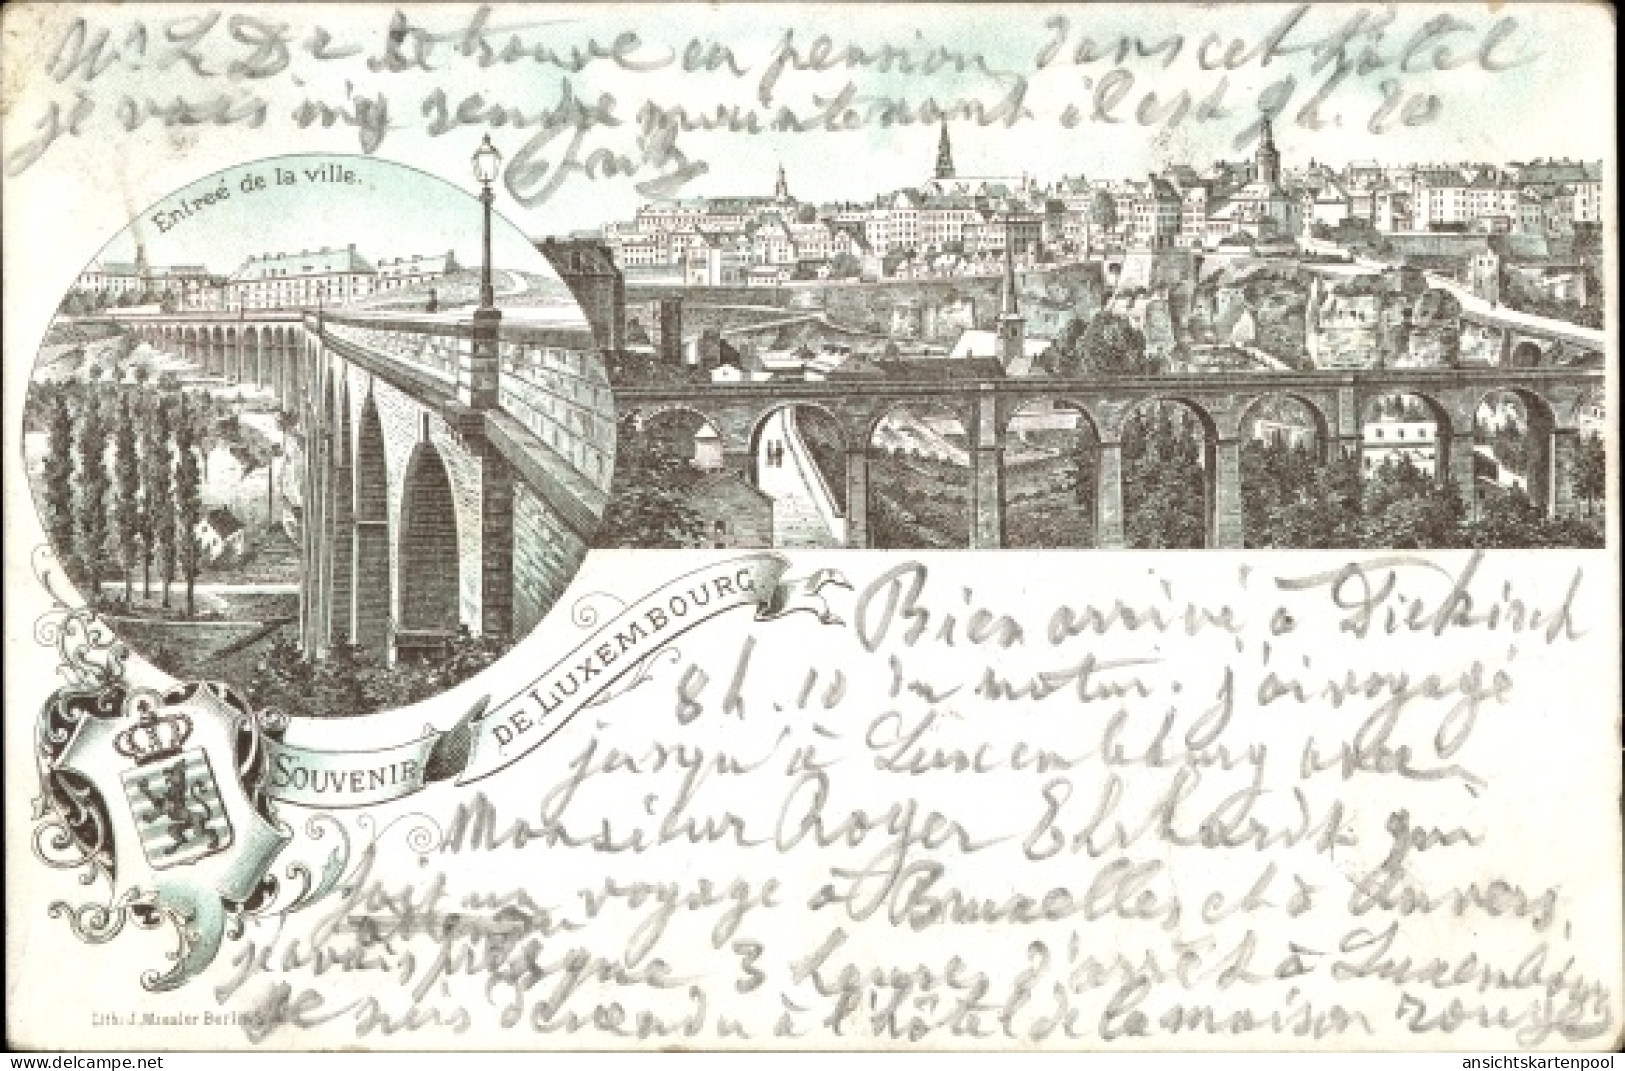 Mr L Dr se trouve en pension dans cet hôtel
je vais m'y rendre maintenant il est 9 h. 20
Fritz
Entreé de la ville.
SOUVENIR DE LUXEMBOURG
Bien arrivé à Diekirch
8 h. 10 du matin. j'ai voyagé
jusqu'à Luxembourg avec
Monsieur Roger Ehrhardt qui
fait un voyage à Bruxelles et à Anvers,
j'avais presque 3 heures d'arrêt à Luxembourg
Je suis descendu à l'hôtel de la maison rouge
Lith: J. Miesler Berlin S.
ansichtskartenpool